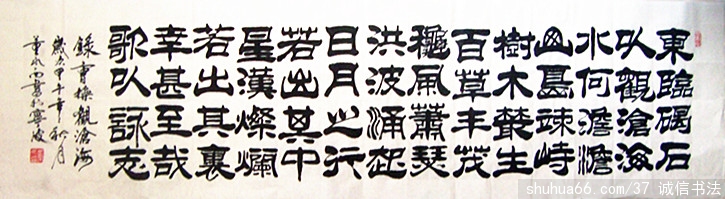 東臨碣石
以觀滄海
水何澹澹
山島竦峙
樹木叢生
百草丰茂
龝風蕭瑟
洪波涌起
日月之行
若出其中
星漢燦爛
若出其裏
幸甚至哉
歌以詠志
錄曹操觀滄海
歲甲午年秋月
董書於寧波
shuhua66.com/37 诚信书法